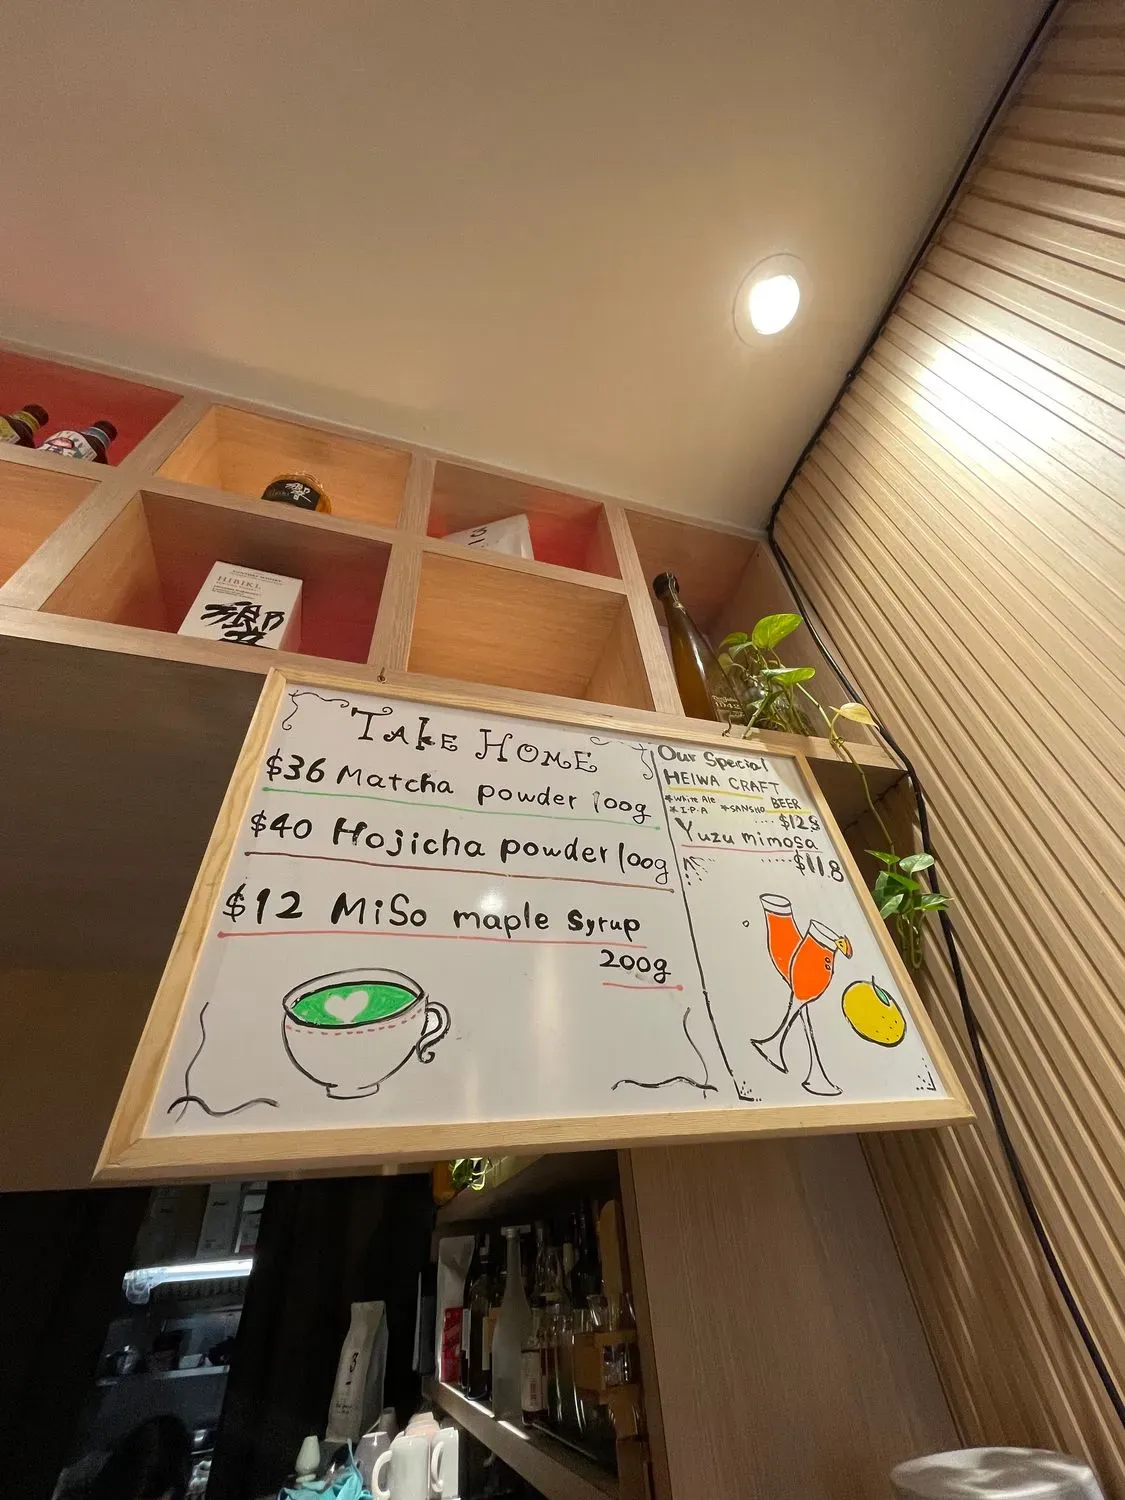 TAKE HOME
$36 Matcha powder 100g
$40 Hojicha powder 100g
$12 MiSo maple Syrup
200g
Our Special
HEIWA CRAFT
BEER
*White Ale
*I.P.A *SANSHO
.... $12.8
Yuzu mimosa
.....$11.8
HIBIKI
響